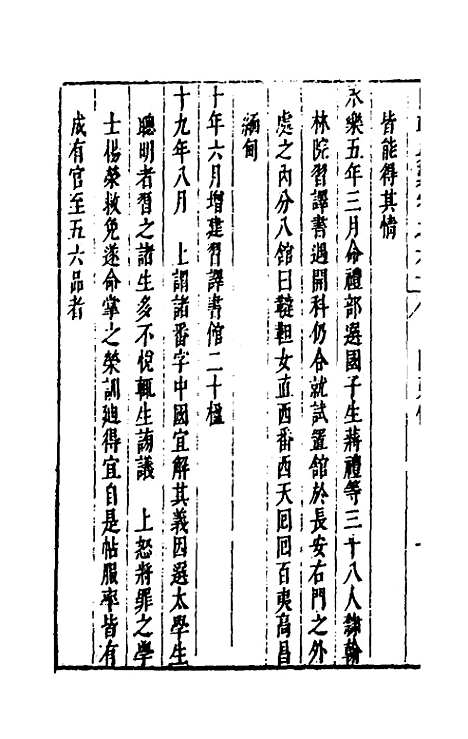 皆能得其情
永樂五年三月命禮部選國子生蔣禮等三十八人隸翰
林院習譯書遇開科仍令就試置館於長安右門之外
處之內分八館曰韃靼女直西番西天回回百夷高昌
緬甸
十年六月增建習譯書館二十楹
十九年八月　上謂諸番字中國宜解其義因選太學生
聰明者習之諸生多不悅輒生謗議　上怒將罪之學
士楊榮救免遂命掌之榮訓廸得宜自是帖服率皆有
成有官至五六品者